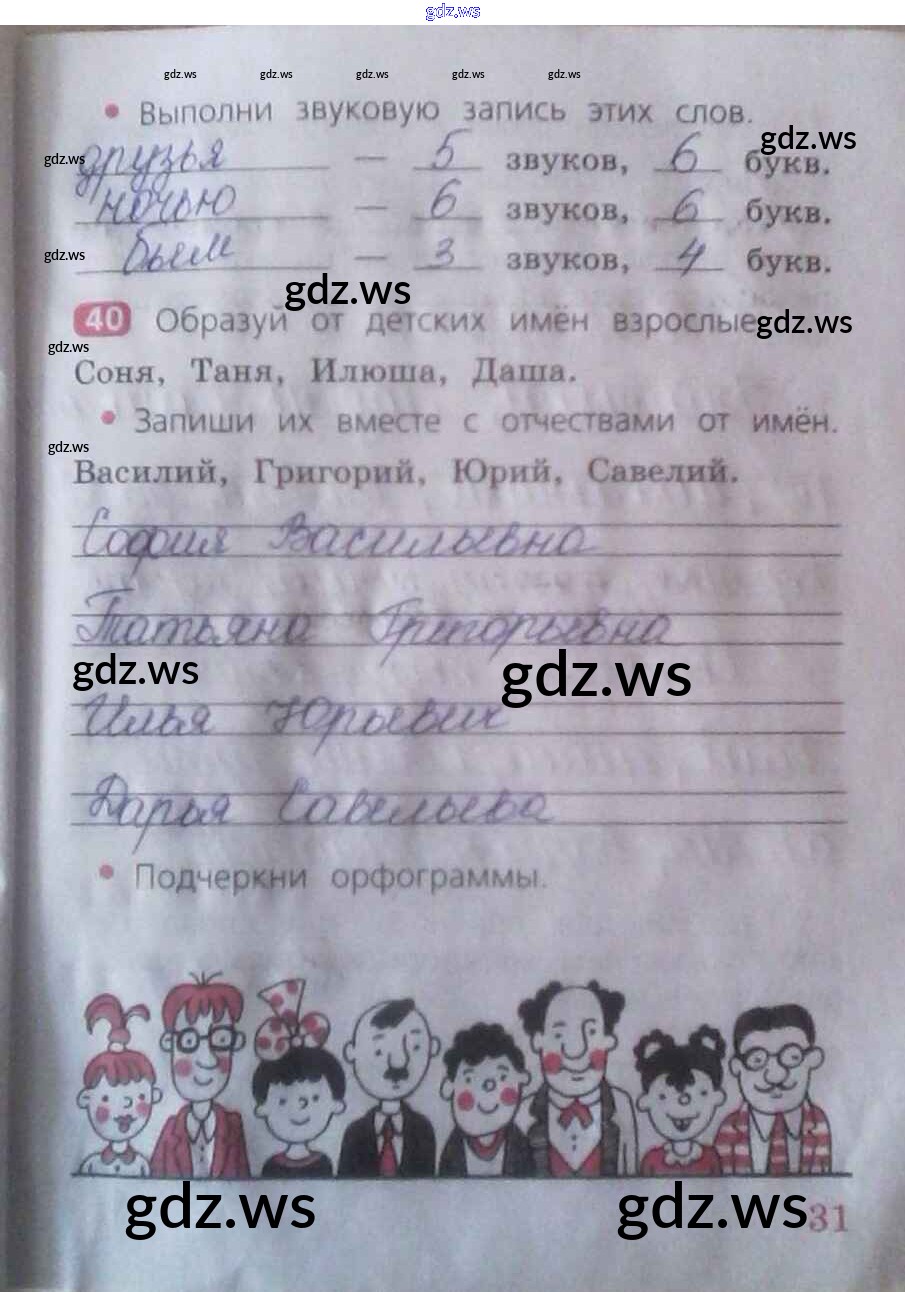 gdz.ws
gdz.ws gdz.ws gdz.ws gdz.ws gdz.ws
• Выполни звуковую запись этих слов.
gdz.ws
gdz.ws
друзья — 5 звуков, 6 букв.
ночью — 6 звуков, 6 букв.
gdz.ws
бьём — 3 звуков, 4 букв.
gdz.ws
40 Образуй от детских имён взрослые
gdz.ws
gdz.ws
Соня, Таня, Илюша, Даша.
• Запиши их вместе с отчествами от имён.
gdz.ws
Василий, Григорий, Юрий, Савелий.
София Васильевна
Татьяна Григорьевна
gdz.ws gdz.ws
Илья Юрьевич
Дарья Савельева
• Подчеркни орфограммы.
gdz.ws gdz.ws
31